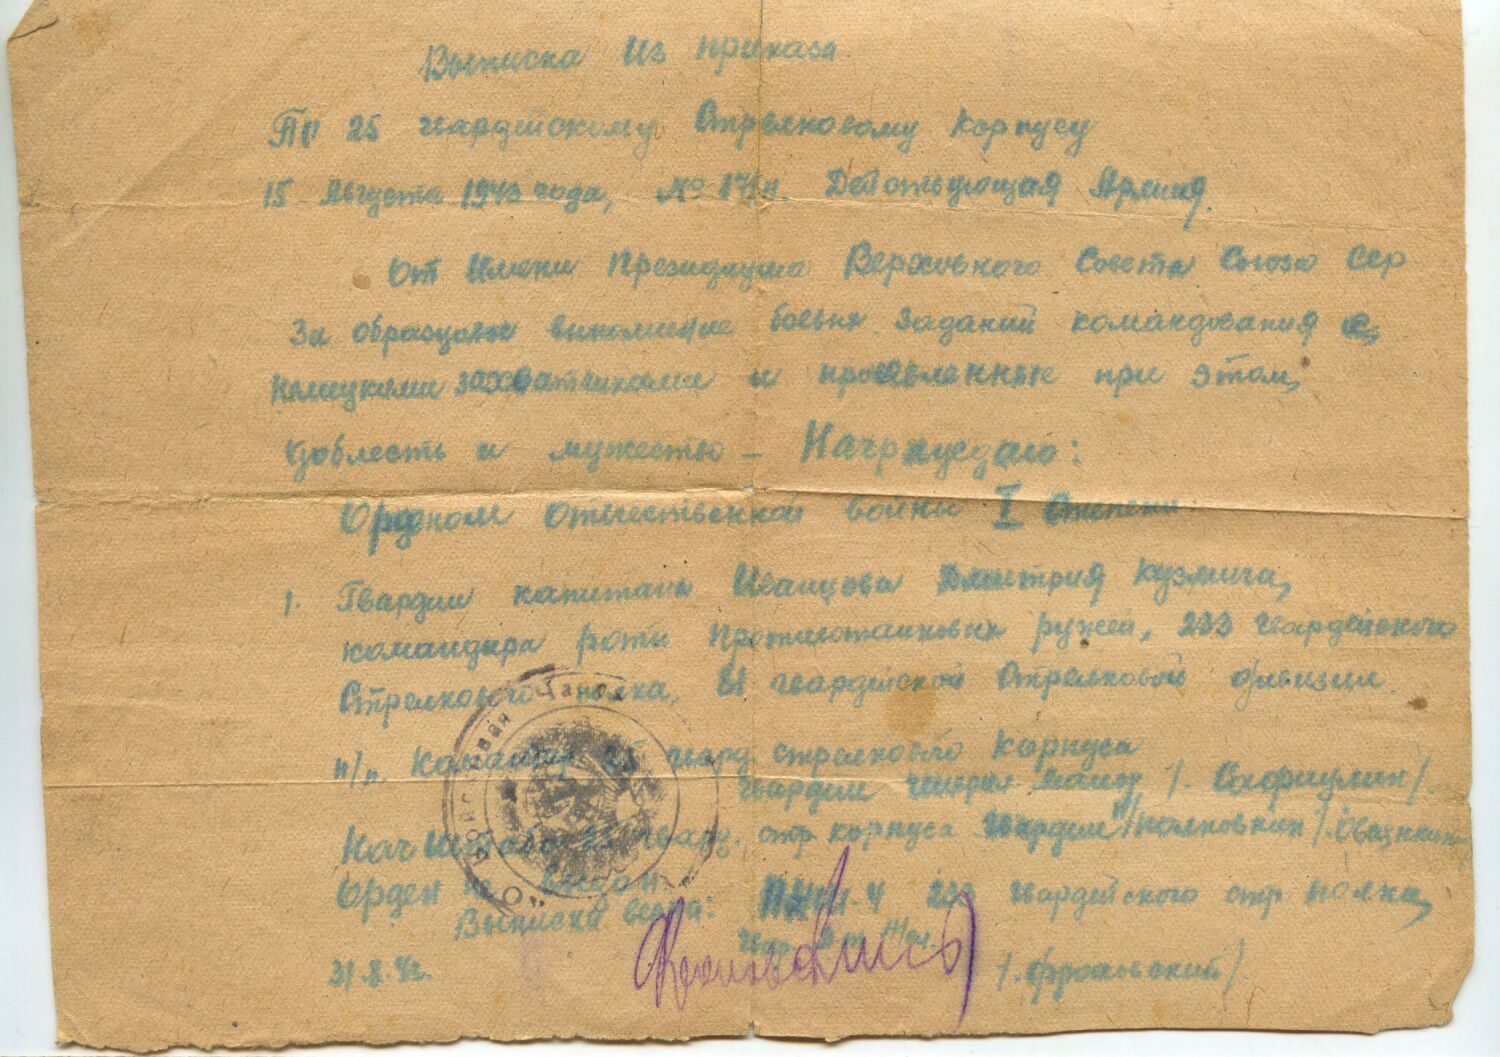 Выписка из приказа.
По 25 гвардейскому Стрелковому Корпусу
15 Августа 1943 года, № 17/н. Действующая Армия.
От Имени Президиума Верховного Совета Союза ССР
За образцовое выполнение боевых заданий командования с
немецкими захватчиками и проявленные при этом,
доблесть и мужество – Награждаю:
Орденом Отечественной войны I Степени:
1. Гвардии капитана Иванцова Дмитрия Кузмича,
командира роты Противотанковых ружей, 233 гвардейского
Стрелкового полка, 81 гвардейской Стрелковой дивизии.
п/п. Командир 25 гвард. стрелкового Корпуса
гвардии генерал майор /. Сафиулин/.
Нач Штаба 25 гвард. стр. корпуса гвардии полковник /.
Орден не выдан
Выписка верна: ПНШ-4 233 гвардейского стр полка,
31.8.